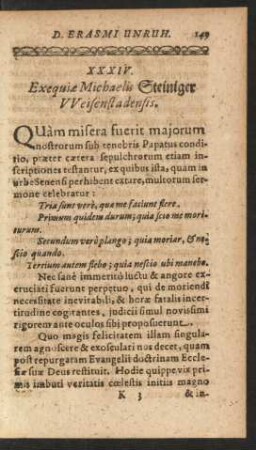 D. ERASMI UNRUH. 149
XXXIV.
Exequiæ Michaelis Steiniger
VVeisenstadensis.
QUàm misera fuerit majorum
nostrorum sub tenebris Papatus condi-
tio, præter cætera sepulchrorum etiam in-
scriptiones testantur, ex quibus ista, quam in
urbe Senensi perhibent extare, multorum ser-
mone celebratur:
Tria sunt verò, quæ me faciunt flere.
Primum quidem durum; quia scio me mori-
turum.
Secundum verò plango; quia moriar, & ne-
scio quando.
Tertium autem flebo; quia nescio ubi manebo.
Nec sanè immeritò luctu & angore ex-
cruciati fuerunt perpetuo, qui de moriendi
necessitate inevitabili, & horæ fatalis incer-
titudine cogitantes, judicii simul novissimi
rigorem ante oculos sibi proposuerunt.
Quo magis felicitatem illam singula-
rem agnoscere & exosculari nos decet, quam
post repurgatam Evangelii doctrinam Eccle-
siæ suæ Deus restituit. Hodie quippe vix pri-
mis imbuti veritatis cœlestis initiis magno
K 3 & in-